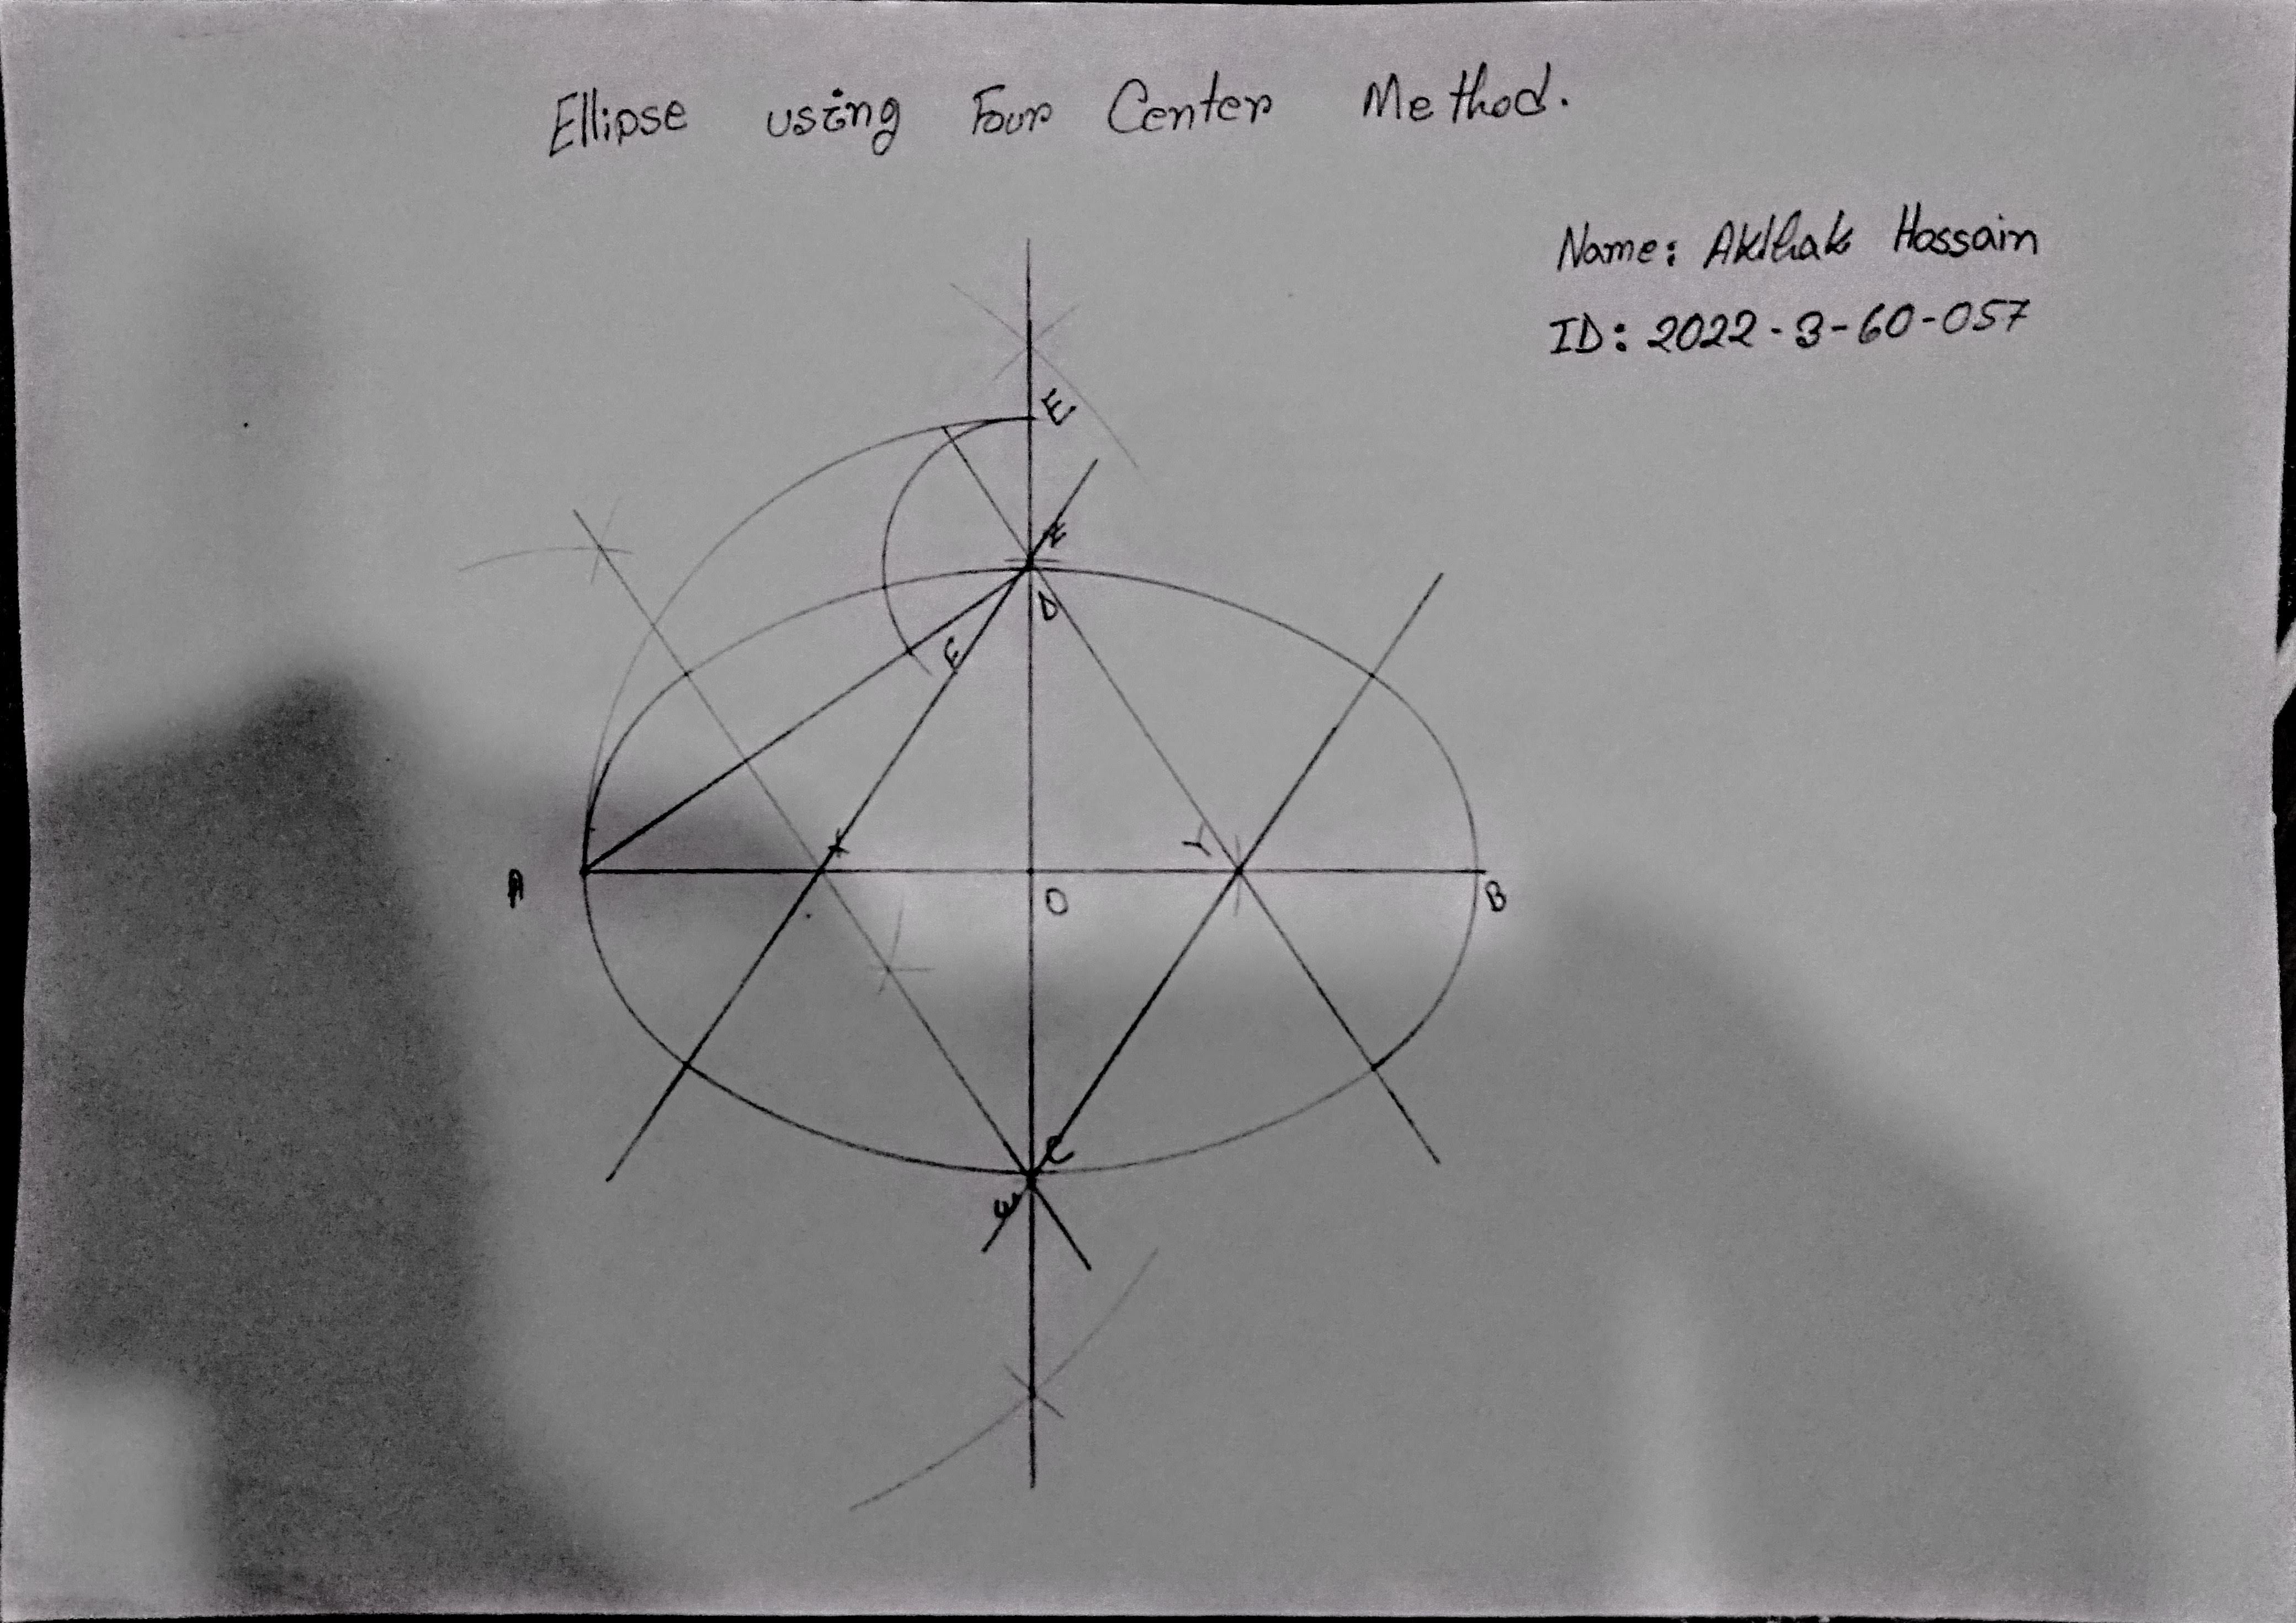 Ellipse using Four Center Method.
Name: Hossain
ID: 2022-3-60-057
E
Z
D
F
X
Y
A
O
B
C